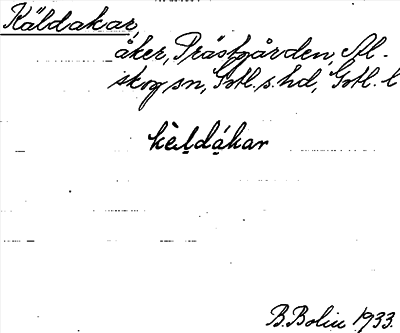 Käldakar,
åker, Prästgården, Al-
skog sn, Gotl. s. hd, Gotl. l
kèldákar
B. Bolin 1933.